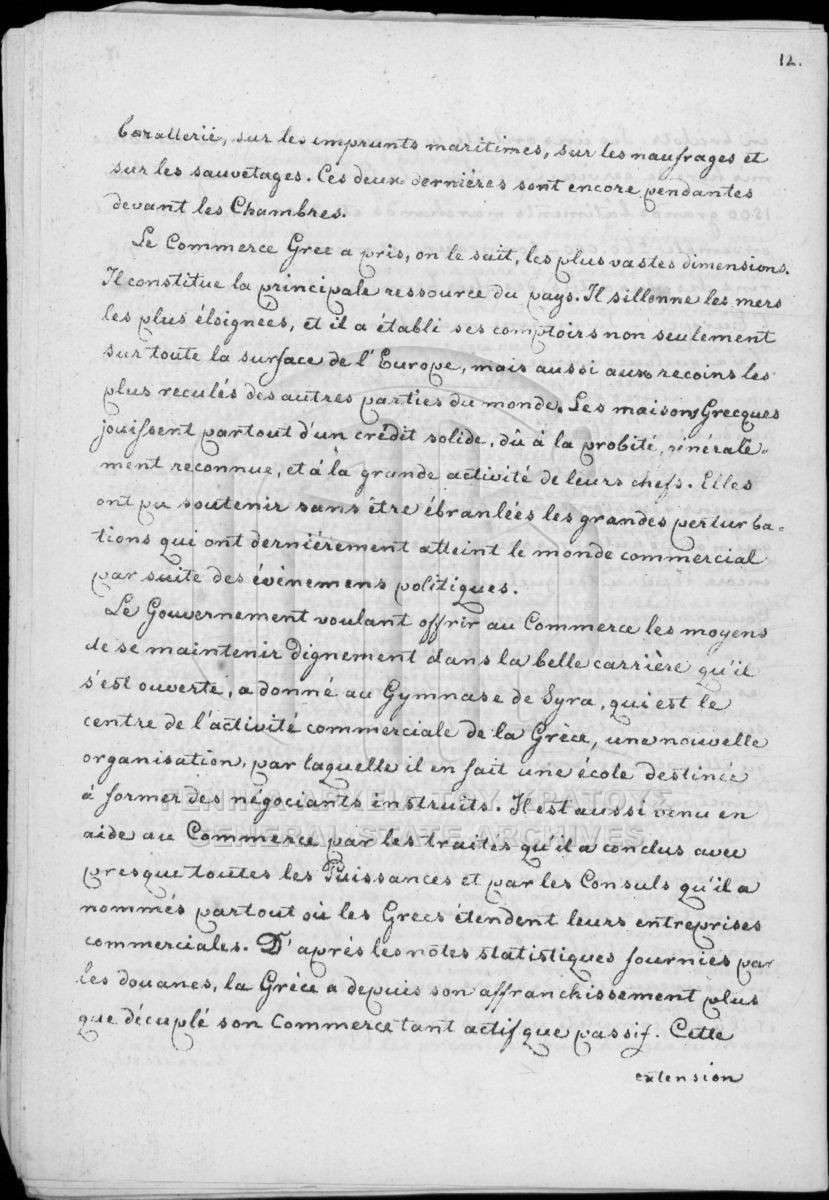 12.
baratterie, sur les emprunts maritimes, sur les naufrages et
sur les sauvetages. Ces deux dernières sont encore pendantes
devant les Chambres.
Le Commerce Grec a pris, on le sait, les plus vastes dimensions.
Il constitue la principale ressource du pays. Il sillonne les mers
les plus éloignées, et il a établi ses comptoirs non seulement
sur toute la surface de l'Europe, mais aussi aux recoins les
plus reculés des autres parties du monde. Les maisons Grecques
jouissent partout d'un crédit solide, dû à la probité, générale-
ment reconnue, et à la grande activité de leurs chefs. Elles
ont pu soutenir sans être ébranlées les grandes perturba-
tions qui ont dernièrement atteint le monde commercial
par suite des événemens politiques.
Le Gouvernement voulant offrir au Commerce les moyens
de se maintenir dignement dans la belle carrière qu'il
s'est ouverte, a donné au Gymnase de Syra, qui est le
centre de l'activité commerciale de la Grèce, une nouvelle
organisation, par laquelle il en fait une école destinée
à former des négociants instruits. Il est aussi venu en
aide au Commerce par les traités qu'il a conclus avec
presque toutes les Puissances et par les Consuls qu'il a
nommés partout où les Grecs étendent leurs entreprises
commerciales. D'après les notes statistiques fournies par
les douanes, la Grèce a depuis son affranchissement plus
que décuplé son Commerce tant actif que passif. Cette
extension
ΓΕΝΙΚΑ ΑΡΧΕΙΑ ΤΟΥ ΚΡΑΤΟΥΣ
GENERAL STATE ARCHIVES